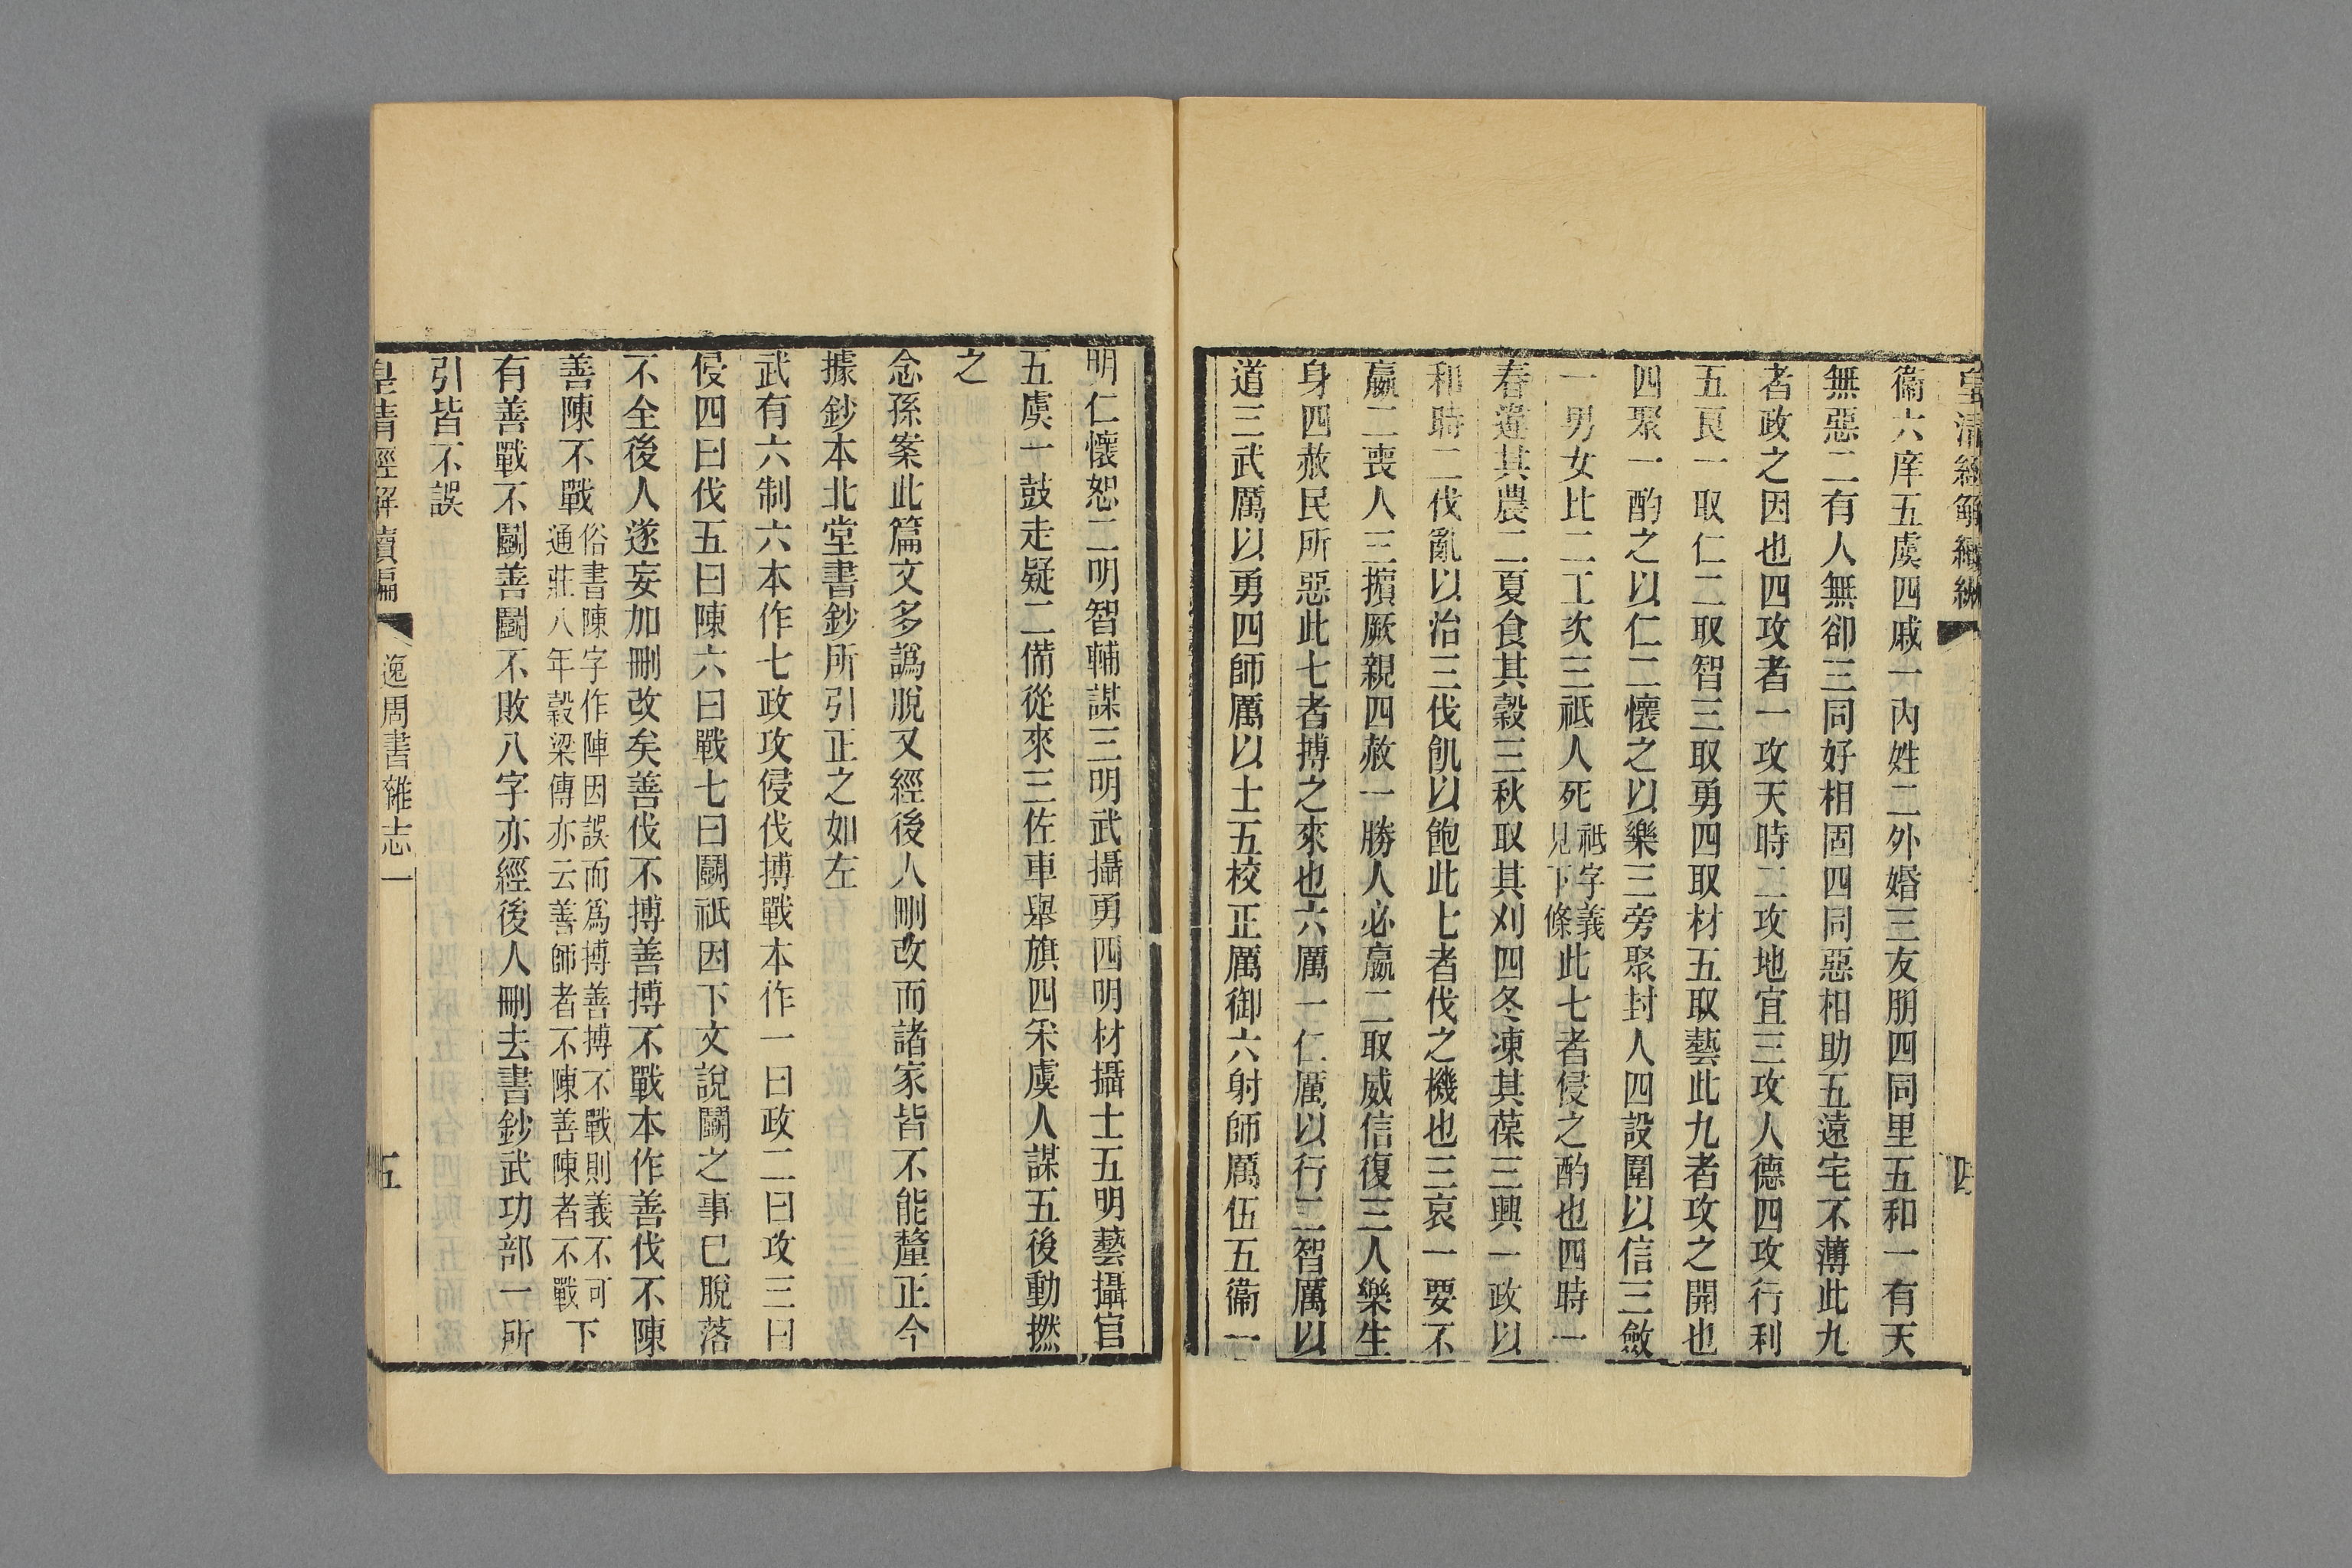 皇清經解續編
四
衞六庠五虞四戚一內姓二外婚三友朋四同里五和一有天
無惡二有人無卻三同好相固四同惡相助五遠宅不薄此九
者政之因也四攻者一攻天時二攻地宜三攻人德四攻行利
五良一取仁二取智三取勇四取材五取藝此九者攻之開也
四聚一酌之以仁二懷之以樂三旁聚封人四設圍以信三斂
一男女比二工次三祗人死祗字義見下條此七者侵之酌也四時一
春違其農二夏食其穀三秋取其刈四冬凍其葆三興一政以
和時二伐亂以治三伐飢以飽此七者伐之機也三哀一要不
羸二喪人三擯厥親四赦一勝人必羸二取威信復三人樂生
身四赦民所惡此七者搏之來也六厲一仁厲以行二智厲以
道三武厲以勇四師厲以士五校正厲御六射師厲伍五衞一
明仁懷恕二明智輔謀三明武攝勇四明材攝士五明藝攝官
五虞一鼓走疑二備從來三佐車舉旗四采虞人謀五後動撚
之
念孫案此篇文多譌脫又經後人刪改而諸家皆不能釐正今
據鈔本北堂書鈔所引正之如左
武有六制六本作七政攻侵伐搏戰本作一曰政二曰攻三曰
侵四曰伐五曰陳六曰戰七曰鬭祇因下文說鬭之事已脫落
不全後人遂妄加刪改矣善伐不搏善搏不戰本作善伐不陳
善陳不戰俗書陳字作陣因誤而爲搏善搏不戰則義不可通莊八年穀梁傳亦云善師者不陳善陳者不戰下
有善戰不鬭善鬭不敗八字亦經後人刪去書鈔武功部一所
引皆不誤
皇清經解續編
逸周書雜志一
五